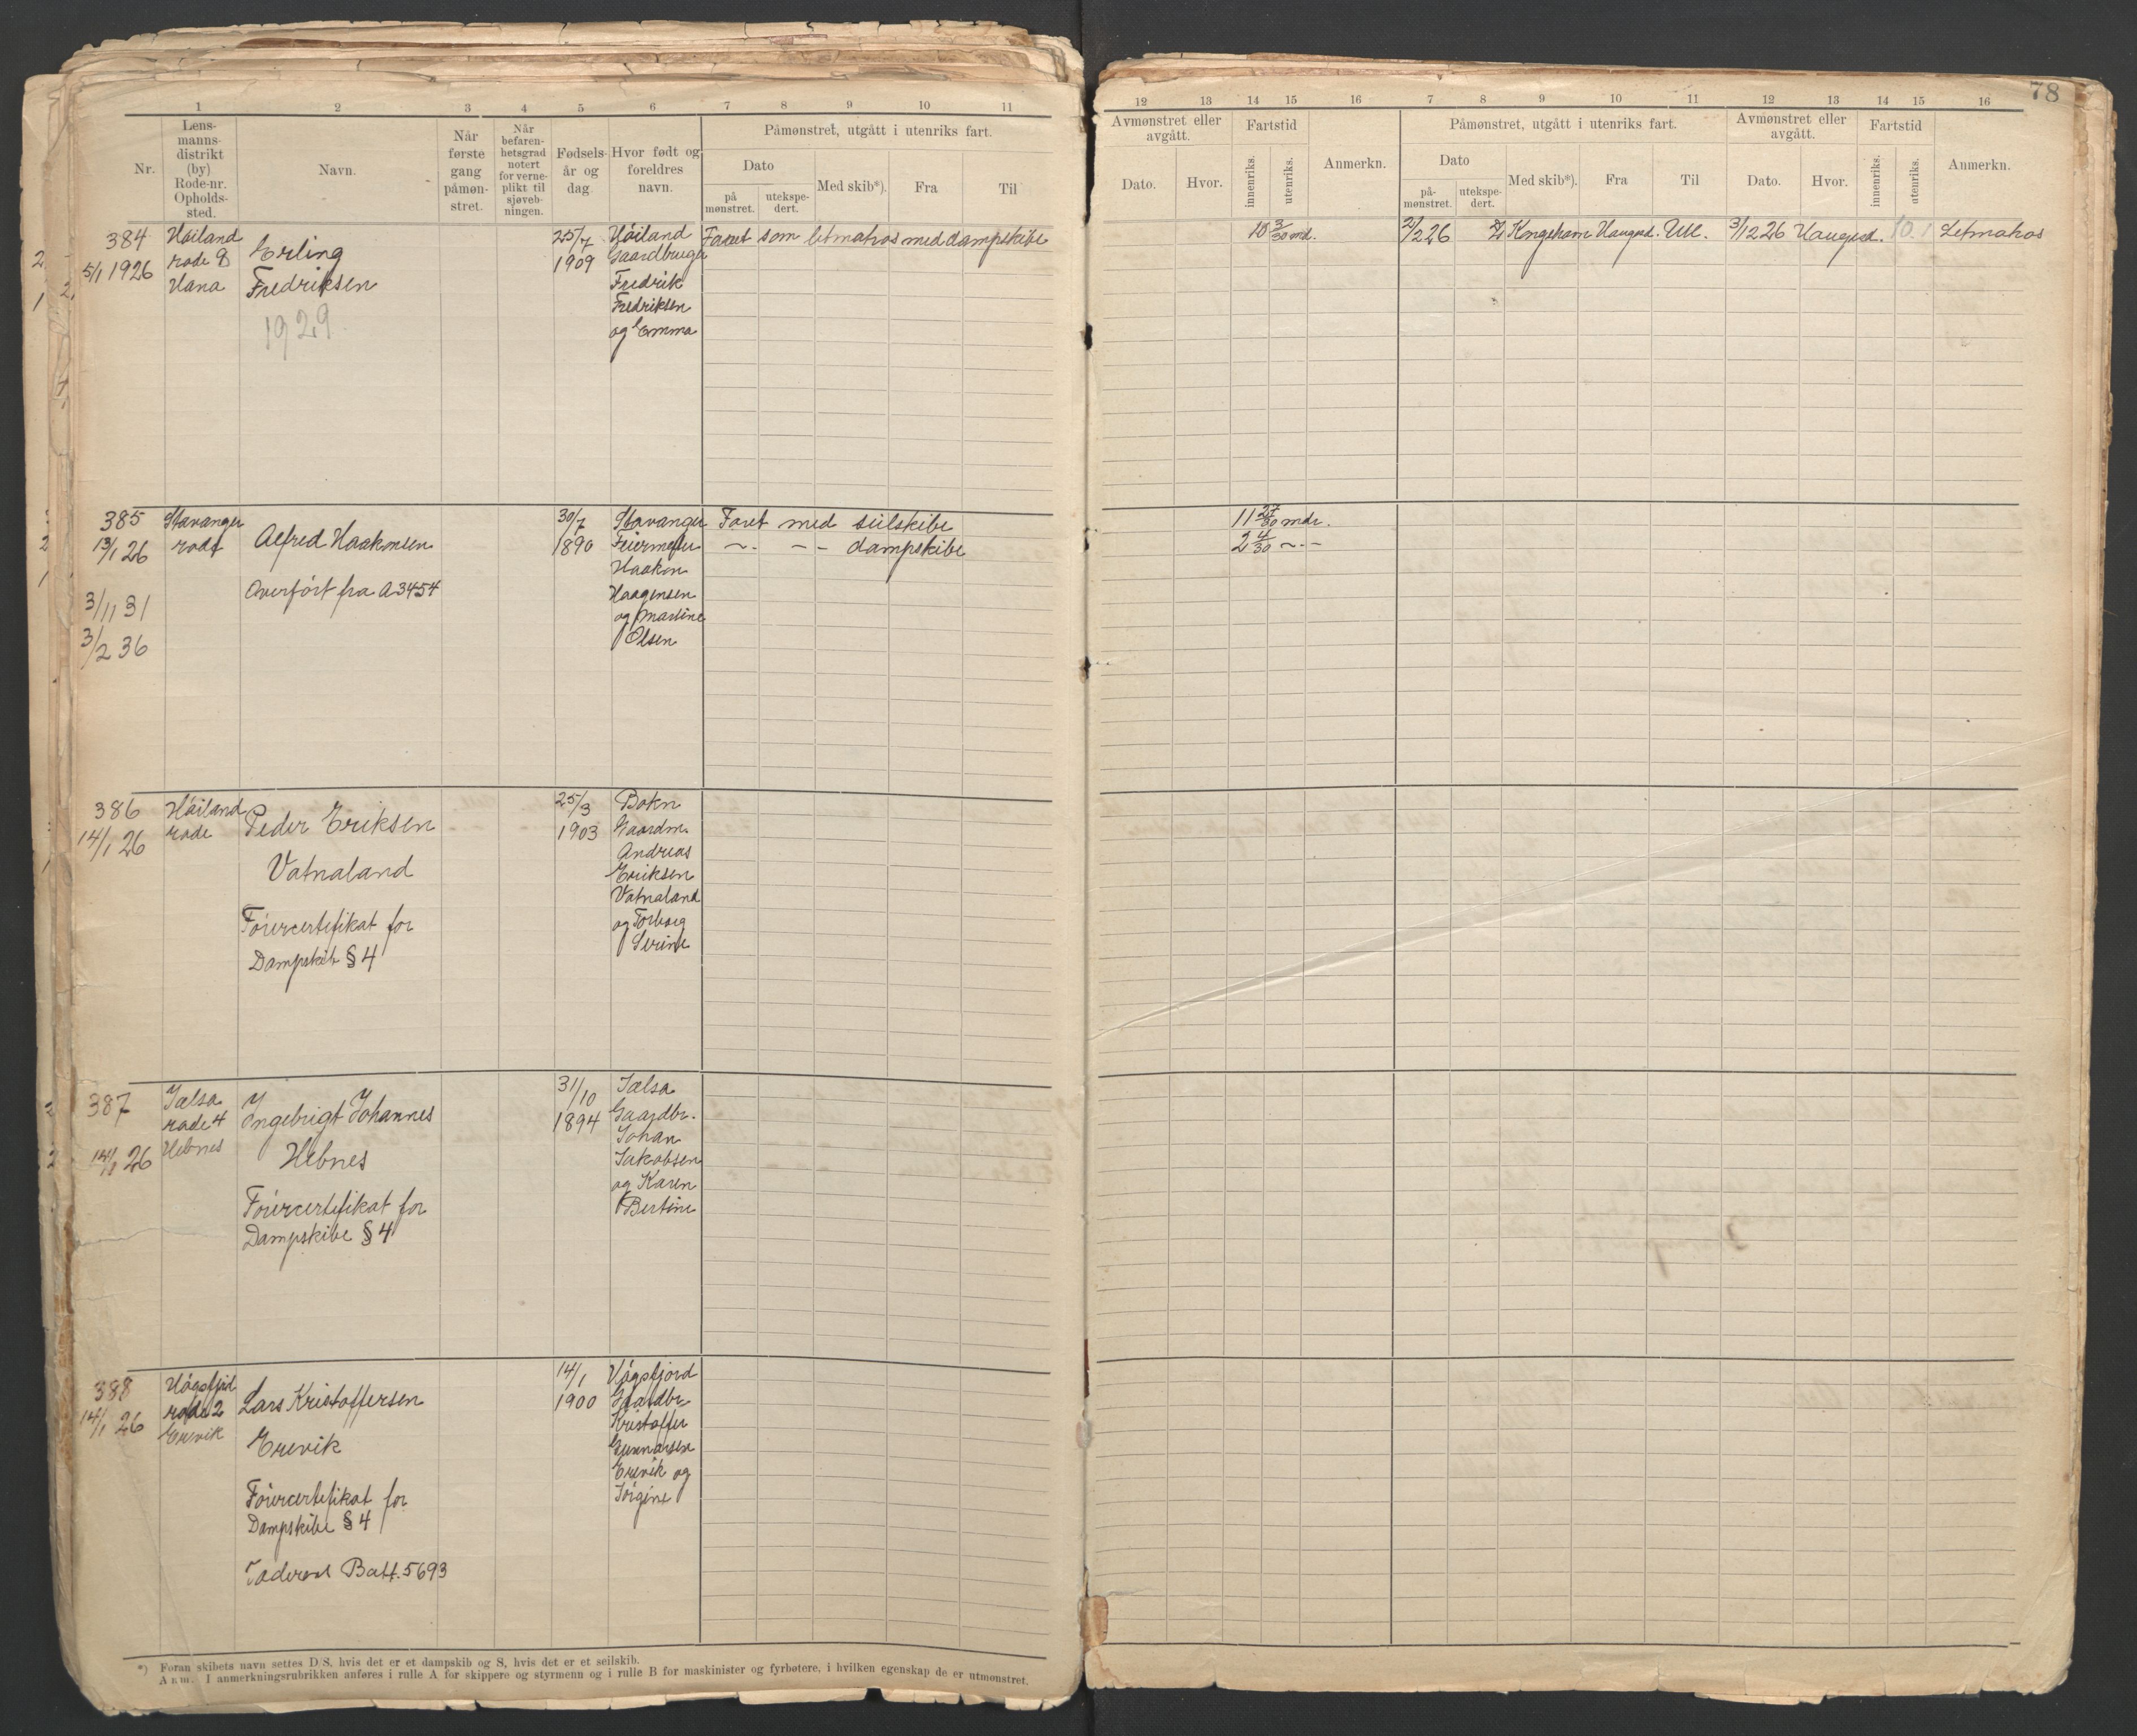 78
1 2 3 4 5 6 7 8 9 10 11
Nr.
Lens-
manns-
distrikt
(by)
Rode-nr.
Opholds-
sted.
Navn.
Når
første
gang
påmøn-
stret.
Når
befaren-
hetsgrad
notert
for verne-
plikt til
sjøveb-
ningen.
Fødsels-
år og
dag.
Hvor født og
foreldres
navn.
Påmønstret, utgått i utenriks fart.
Dato
på
mønstret.
utekspe-
dert.
Med skib*).
Fra
Til
12 13 14 15 16 7 8 9 10 11 12 13 14 15 16
Avmønstret eller
avgått.
Dato.
Hvor.
Fartstid
innenriks.
utenriks.
Anmerkn.
Påmønstret, utgått i utenriks fart.
Dato
på-
mønstret.
utekspe-
dert.
Med skib*).
Fra
Til
Avmønstret eller
avgått.
Dato.
Hvor.
Fartstid
innenriks.
utenriks.
Anmerkn.
384
5/1 1926
Høiland
rode 8
Hana
Erling
Fredriksen
1929
25/7
1909
Høiland
Gaardbruger
Fredrik
Fredriksen
og Emma
Faret som letmatros med dampskibe
10 3/30 md.
2/2 26
Kongsham Haugesd. Utl. 3/12 26 Haugesd. 10. 1 Letmatros
385
13/1 26
3/11 31
3/2 36
Stavanger
rode
Alfred Haakonsen
Overført fra A 3454
30/7
1890
Stavanger
Feiermester
Haakon
Haagensen
og Marsine
Olsen
Faret med seilskibe
~- -- dampskibe
11 27/30 mdr.
2 4/30 ~-~
386
14/1 26
Høiland
rode
Peder Eriksen
Vatnaland
Førercertifikat for
Dampskib § 4
25/3
1903
Bokn
Gaardm.
Andreas
Eriksen
Vatnaland
og Torborg
Serine
387
14/1 26
Jælsa
rode 4
Hebnes
Ingebrigt Johannes
Hebnes
Førercertifikat for
Dampskibe § 4
31/10
1894
Jælsa
Gaardbr.
Johan
Jakobsen
og Karen
Bertine
388
14/1 26
Høgsfjord
rode 2
Erevik
Lars Kristoffersen
Erevik
Førercertifikat for
Dampskibe § 4
Jæderens Batt. 5693
14/1
1900
Høgsfjord
Gaardbr
Kristoffer
Gunnarsen
Erevik og
Jørgine
*) Foran skibets navn settes D/S, hvis det er et dampskib og S, hvis det er et seilskib.
Anm. I anmerkningsrubrikken anføres i rulle A for skippere og styrmenn og i rulle B for maskinister og fyrbøtere, i hvilken egenskap de er utmønstret.